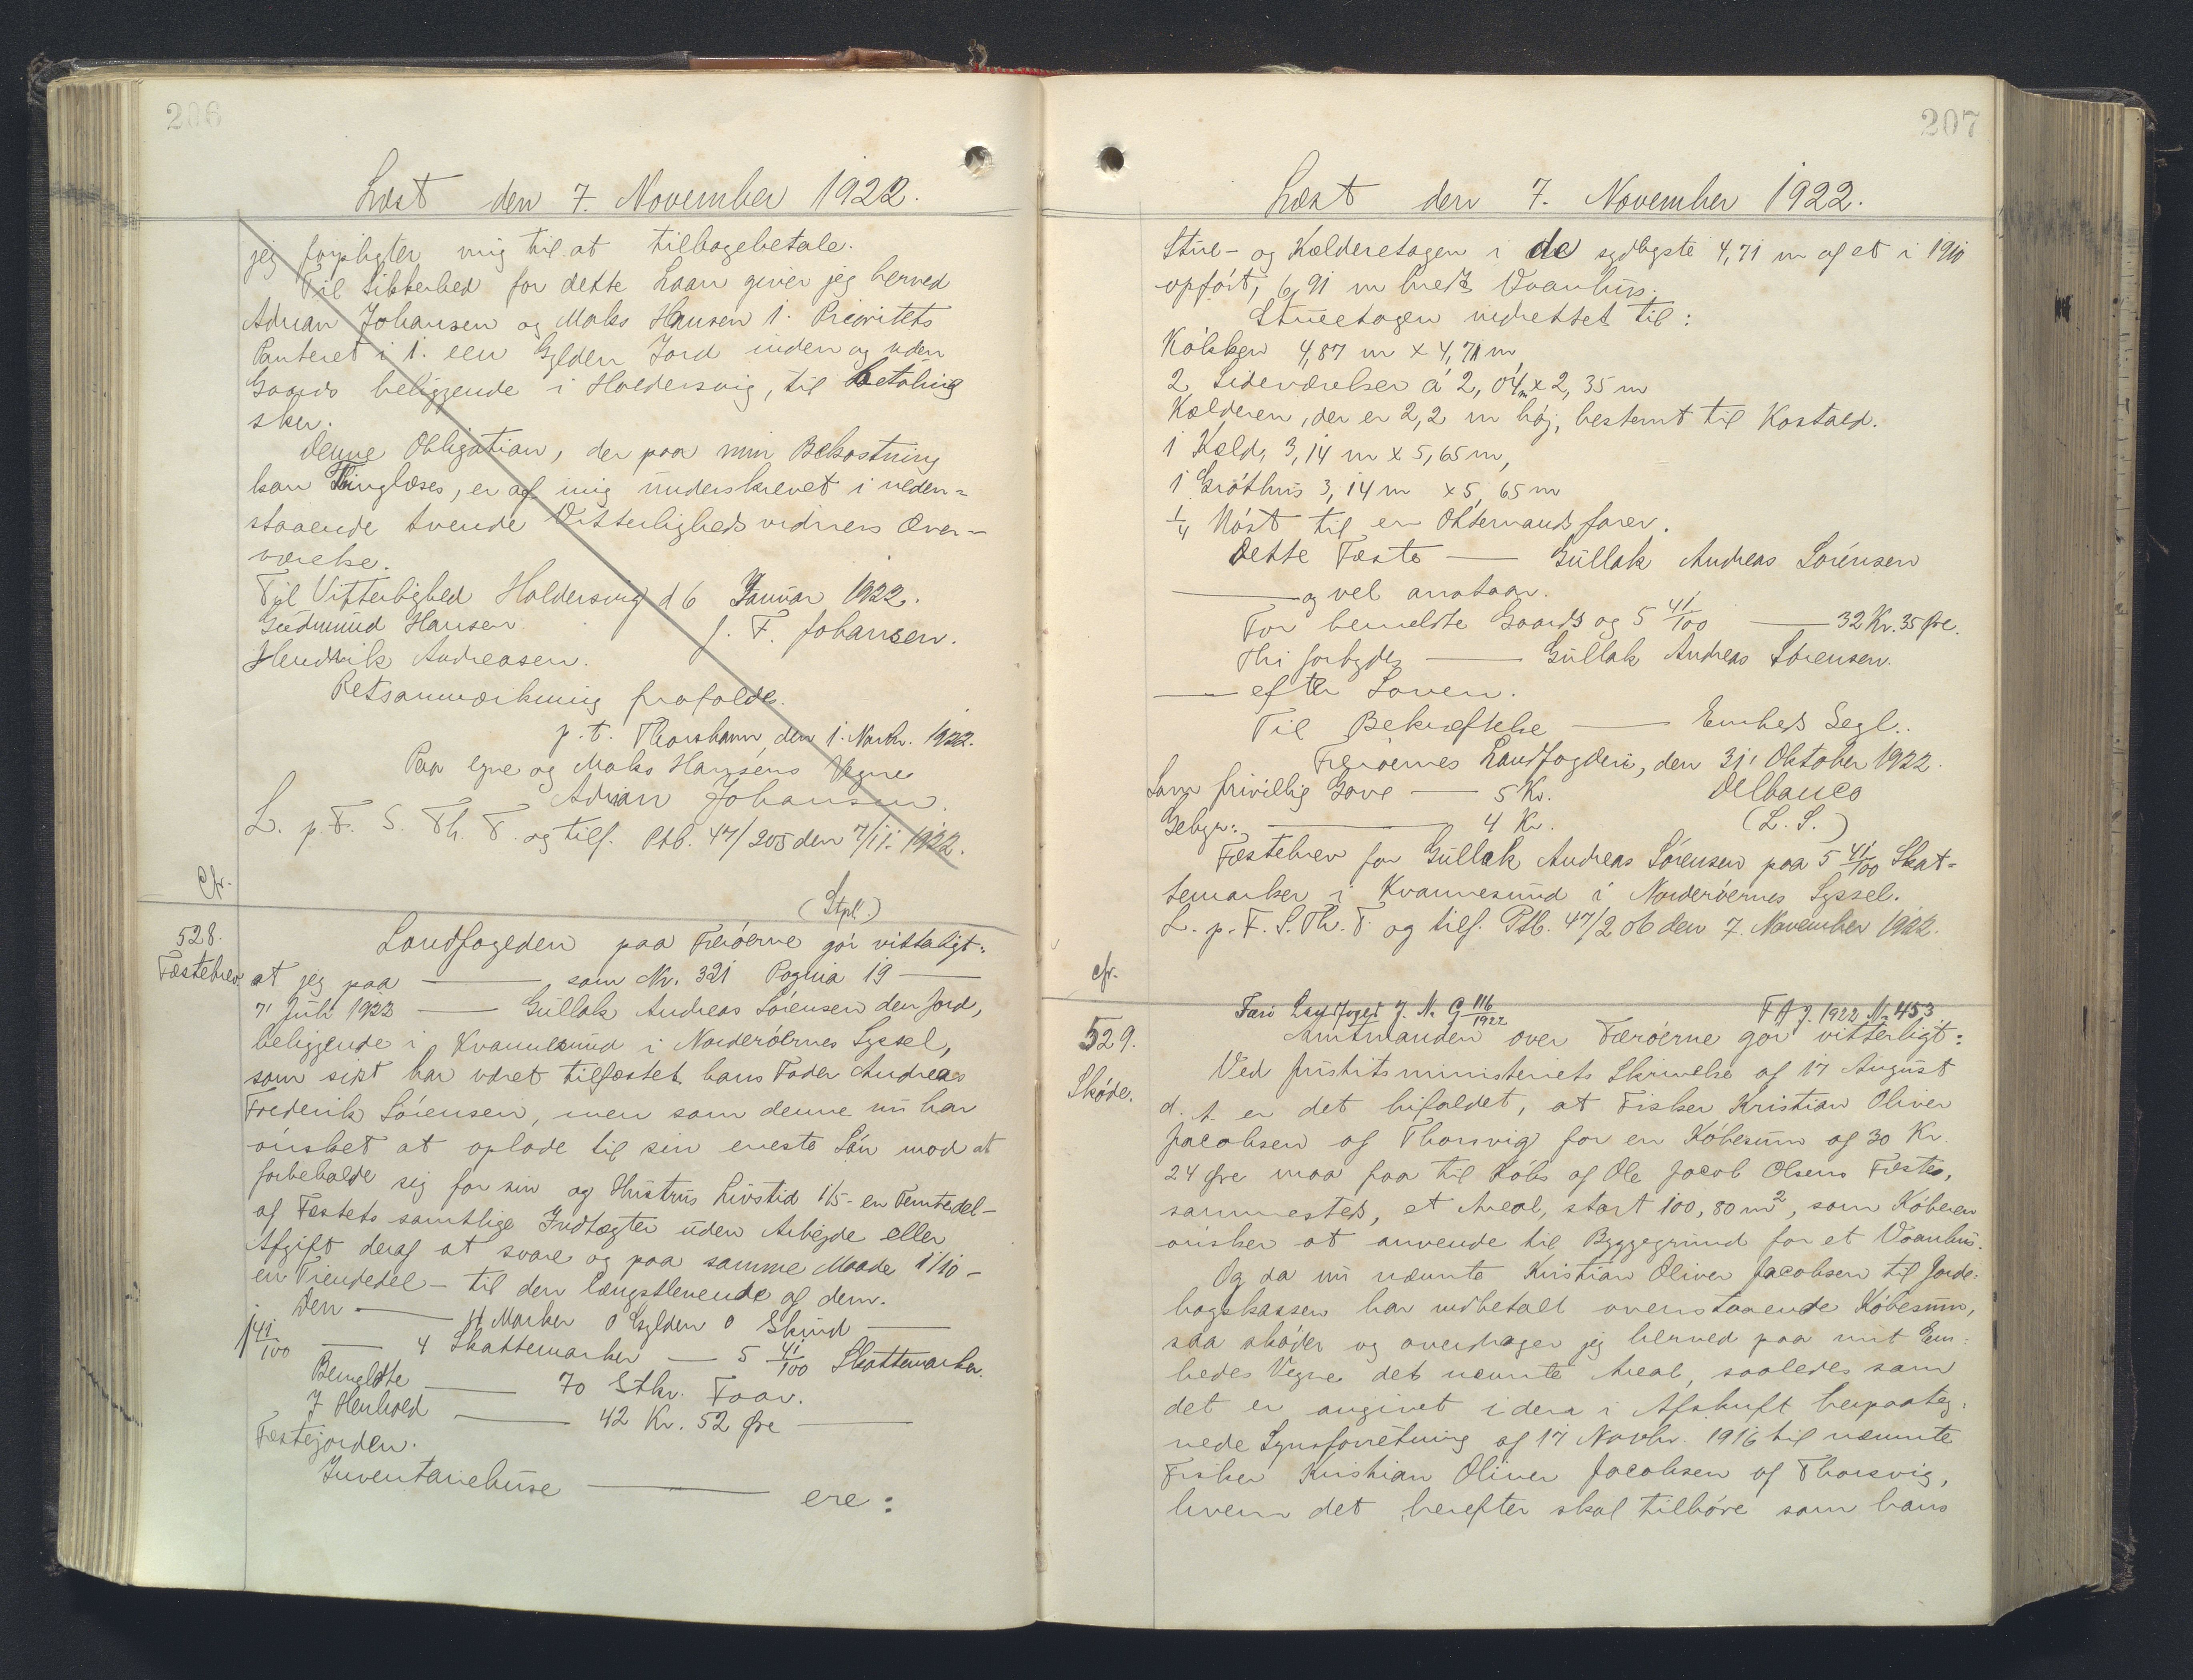 206
Læst den 7. November 1922.
jeg forpligter mig til at tilbagebetale.
Til Sikkerhed for dette Laan giver jeg herved
Adrian Johansen og Maks Hansen 1. Prioritets
Panteret i 1. een Gylden Jord inden og uden
Gaards beliggende i Haldersvig, til Betaling
sker.
Denne Obligation, der paa min Bekostning
kan Tinglæses, er af mig underskrevet i neden=
staaende tvende Vitterlighedsvidners Over-
værelse.
Til Vitterlighed Haldersvig d 6 Januar 1922.
Gudmund Hansen. J. F. Johansen.
Hendrik Andreasen.
Retsanmærkning frafaldes.
p. t. Thorshavn, den 1. Novbr. 1922.
Paa egne og Maks Hansens Vegne
Adrian Johansen.
L. p. F. S. Th. T. og tilf. Ptb. 47/205 den 7/11. 1922.
Cfr.
(Stpl.)
528.
Fæstebrev
Landfogeden paa Færøerne gör vitterligt:
at jeg paa — som Nr. 321 Pagina 19 —
7' Juli 1922 — Gullak Andreas Sörensen den Jord,
beliggende i Kvannesund i Norderöernes Syssel,
som sidst har været tilfæstet hans Fader Andreas
Frederik Sörensen, men som denne nu har
önsket at oplade til sin eneste Sön mod at
forbeholde sig for sin og Hustrus Livstid 1/5 - en Femtedel -
af Fæstets samtlige Indtægter uden Arbejde eller
Afgift deraf at svare og paa samme Maade 1/10 -
en Tiendedel - til den længstlevende af dem.
Den — 11 Marker 0 Gylden 0 Skind —
1 41/100 — 4 Skattemarker — 5 41/100 Skattemarker.
Bemeldte — 70 Stkr. Faar.
I Henhold — 42 Kr. 52 Øre —
Fæstejorden.
Inventariehuse — ere:
207
Læst den 7. November 1922.
Stue- og Kælderetagen i de sydligste 4,71 m af et i 1910
opfört, 6,91 m bredt Vaanhus.
Stueetagen indrettet til:
Kökken 4,87 m x 4,71 m
2 Sideværelser á 2,04 m x 2,35 m
Kælderen, der er 2,2 m höj, bestemt til Kostald.
1 Kæld. 3,14 m x 5,65 m,
1 Gróthus 3,14 m x 5,65 m
1/4 Nöst til en Ottemandsfarer.
Dette Fæste — Gullak Andreas Sörensen
— og vel anstaar.
For bemeldte Gaards og 5 41/100 — 32 Kr. 35 Øre.
Thi forbydes — Gullak Andreas Sörensen.
— efter Loven.
Til Bekræftelse — Embeds Segl.
Færöernes Landfogderi, den 31' Oktober 1922.
Sum frivillig Gave — 5 Kr. Delbanco
Gebyr: — 4 Kr. (L. S.)
Fæstebrev for Gullak Andreas Sörensen paa 5 41/100 Skat=
temarker i Kvannesund i Norderöernes Syssel.
L. p. F. S. Th. T. og tilf. Ptb. 47/206 den 7. November 1922.
cfr.
Færö Landfoged J. Nr G 116/1922 F A J. 1922 Nr 453.
529.
Sköde.
Amtmanden over Færöerne gör vitterligt:
Ved Justitsministeriets Skrivelse af 17 August
d. A. er det bifaldet, at Fisker Kristian Oliver
Jacobsen af Thorsvig for en Köbesum af 30 Kr.
24 Øre maa faa til Köbs af Ole Jacob Olsens Fæste,
sammesteds, et Areal, stort 100,80 m², som Köberen
önsker at anvende til Byggegrund for et Vaanhus.
Og da nu nævnte Kristian Oliver Jacobsen til Jorde:
bogskassen har indbetalt ovenstaaende Köbesum,
saa sköder og overdrager jeg herved paa mit Em:
bedes Vegne det nævnte Areal, saaledes som
det er angivet i den i Afskrift herpaateg:
nede Synsforretning af 17 Novbr. 1916 til nævnte
Fisker Kristian Oliver Jacobsen af Thorsvig,
hvem det herefter skal tilhöre som hans